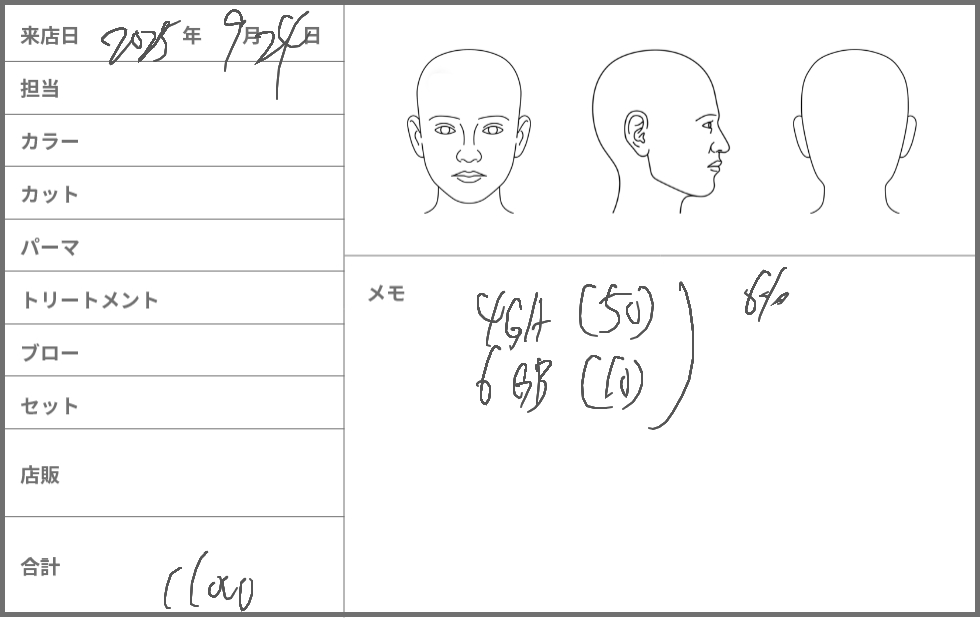 来店日 2025 年 9月24日
担当
カラー
カット
パーマ
トリートメント
ブロー
セット
店販
合計 11000
メモ
4GA (50)
6GB (10)
6%